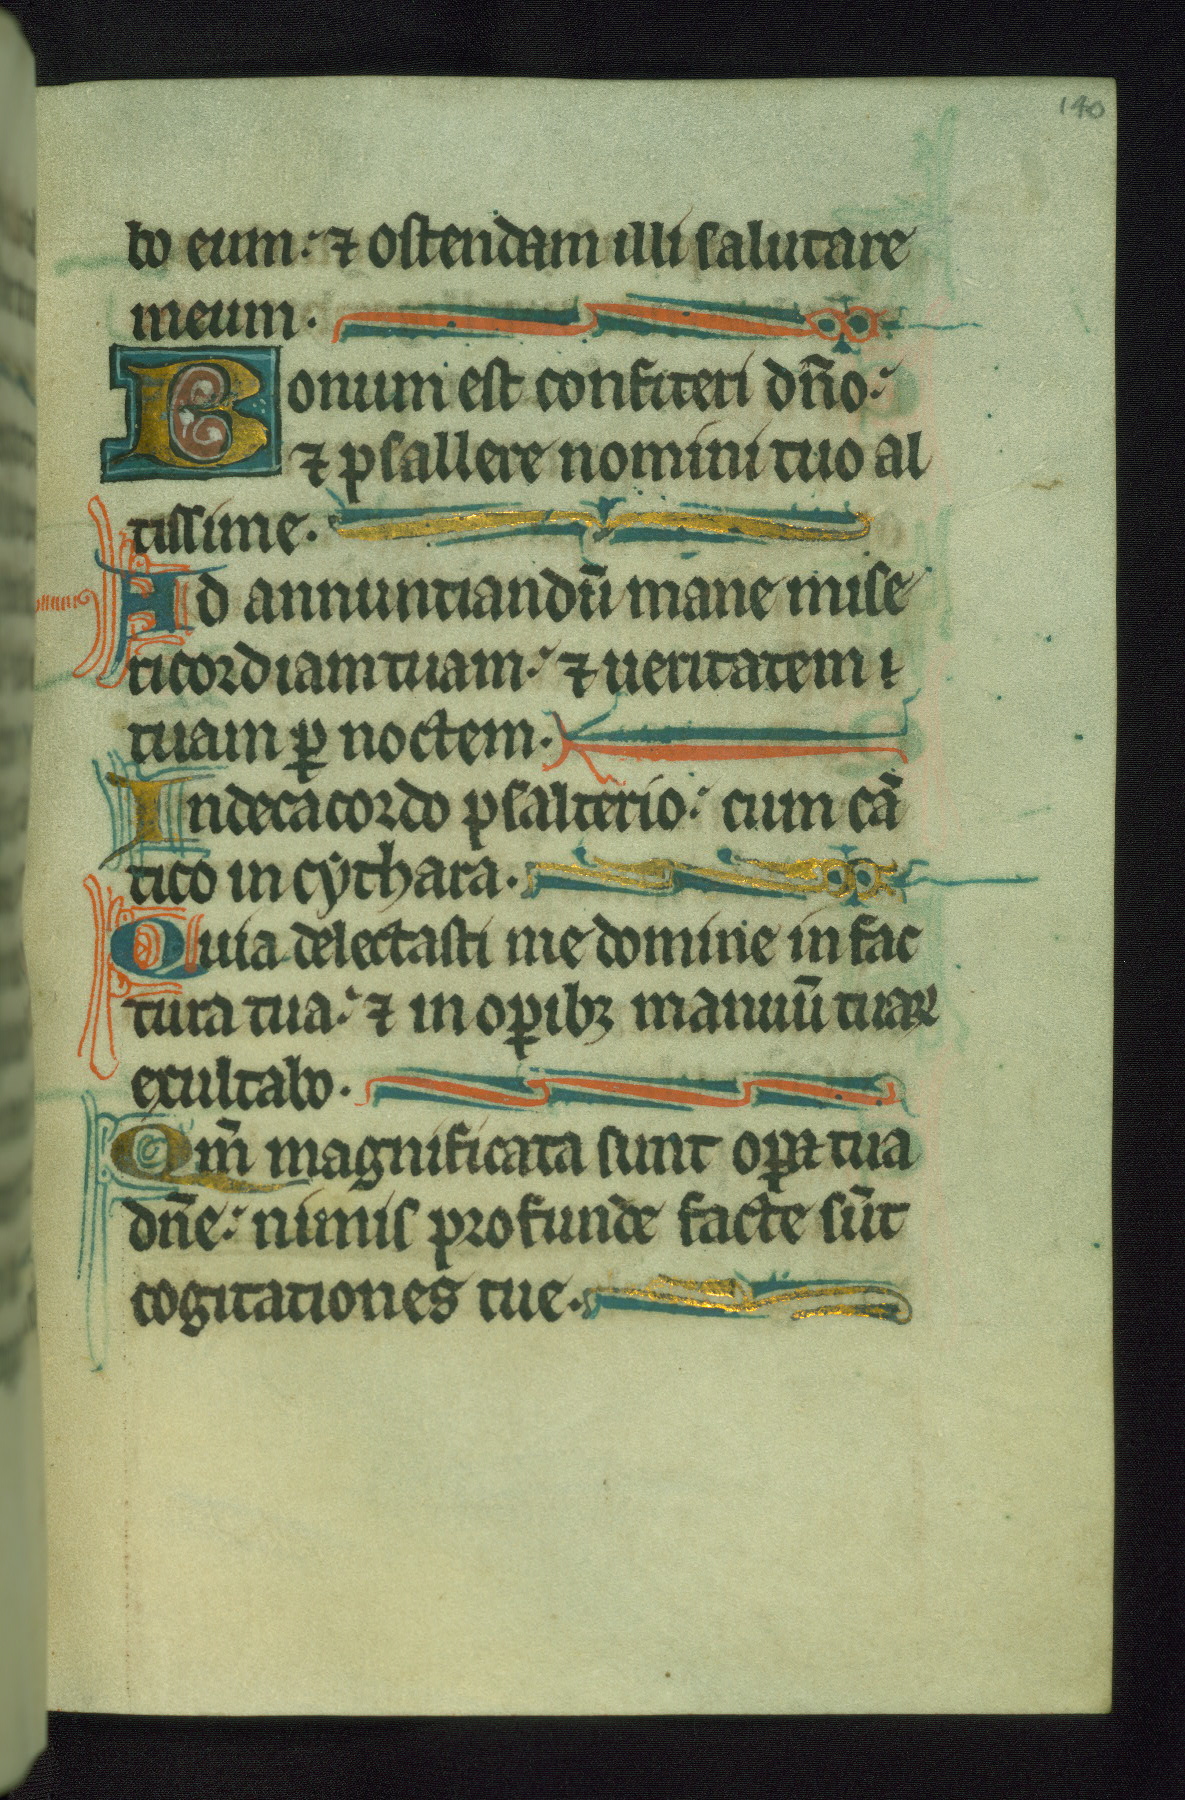 140
bo eum: ⁊ ostendam illi salutare
meum.
Bonum est confiteri dño:
⁊ psallere nomini tuo al
tissime.
Ad annuntiandū mane mise
ricordiam tuam: ⁊ ueritatem
tuam ꝑ noctem.
In decacordo psalterio: cum cā
tico in cythara.
Quia delectasti me domine in fac
tura tua: ⁊ in oꝑibꝫ manuū tuaꝝ
exultabo.
Qm̄ magnificata sunt oꝑa tua
dñe: nimis profunde facte sūt
cogitationes tue.